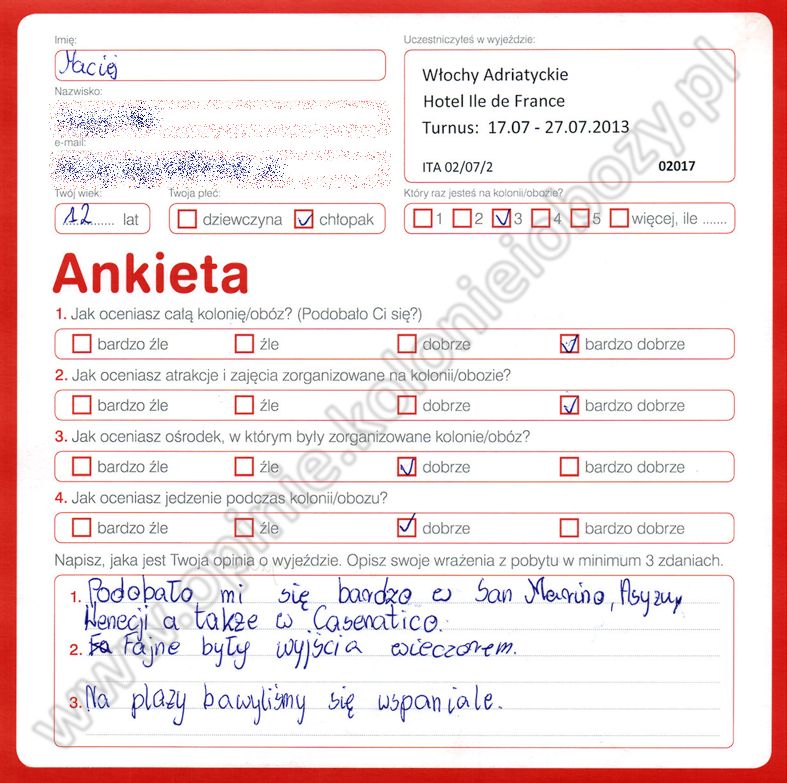 Imię:
Maciej
Nazwisko:
e-mail:
Twój wiek:
12 lat
Twoja płeć:
dziewczyna chłopak
Uczestniczyłeś w wyjeździe:
Włochy Adriatyckie
Hotel Ile de France
Turnus: 17.07 - 27.07.2013
ITA 02/07/2 02017
Który raz jesteś na kolonii/obozie?
1 2 3 4 5 więcej, ile .......
Ankieta
1. Jak oceniasz całą kolonię/obóz? (Podobało Ci się?)
bardzo źle źle dobrze bardzo dobrze
2. Jak oceniasz atrakcje i zajęcia zorganizowane na kolonii/obozie?
bardzo źle źle dobrze bardzo dobrze
3. Jak oceniasz ośrodek, w którym były zorganizowane kolonie/obóz?
bardzo źle źle dobrze bardzo dobrze
4. Jak oceniasz jedzenie podczas kolonii/obozu?
bardzo źle źle dobrze bardzo dobrze
Napisz, jaka jest Twoja opinia o wyjeździe. Opisz swoje wrażenia z pobytu w minimum 3 zdaniach.
1. Podobało mi się bardzo w San Marino, Asyżu,
Wenecji a także w Casenatico.
2. Fajne były wyjścia wieczorem.
3. Na plaży bawyliśmy się wspaniale.
www.opinie.kolonieiobozy.pl